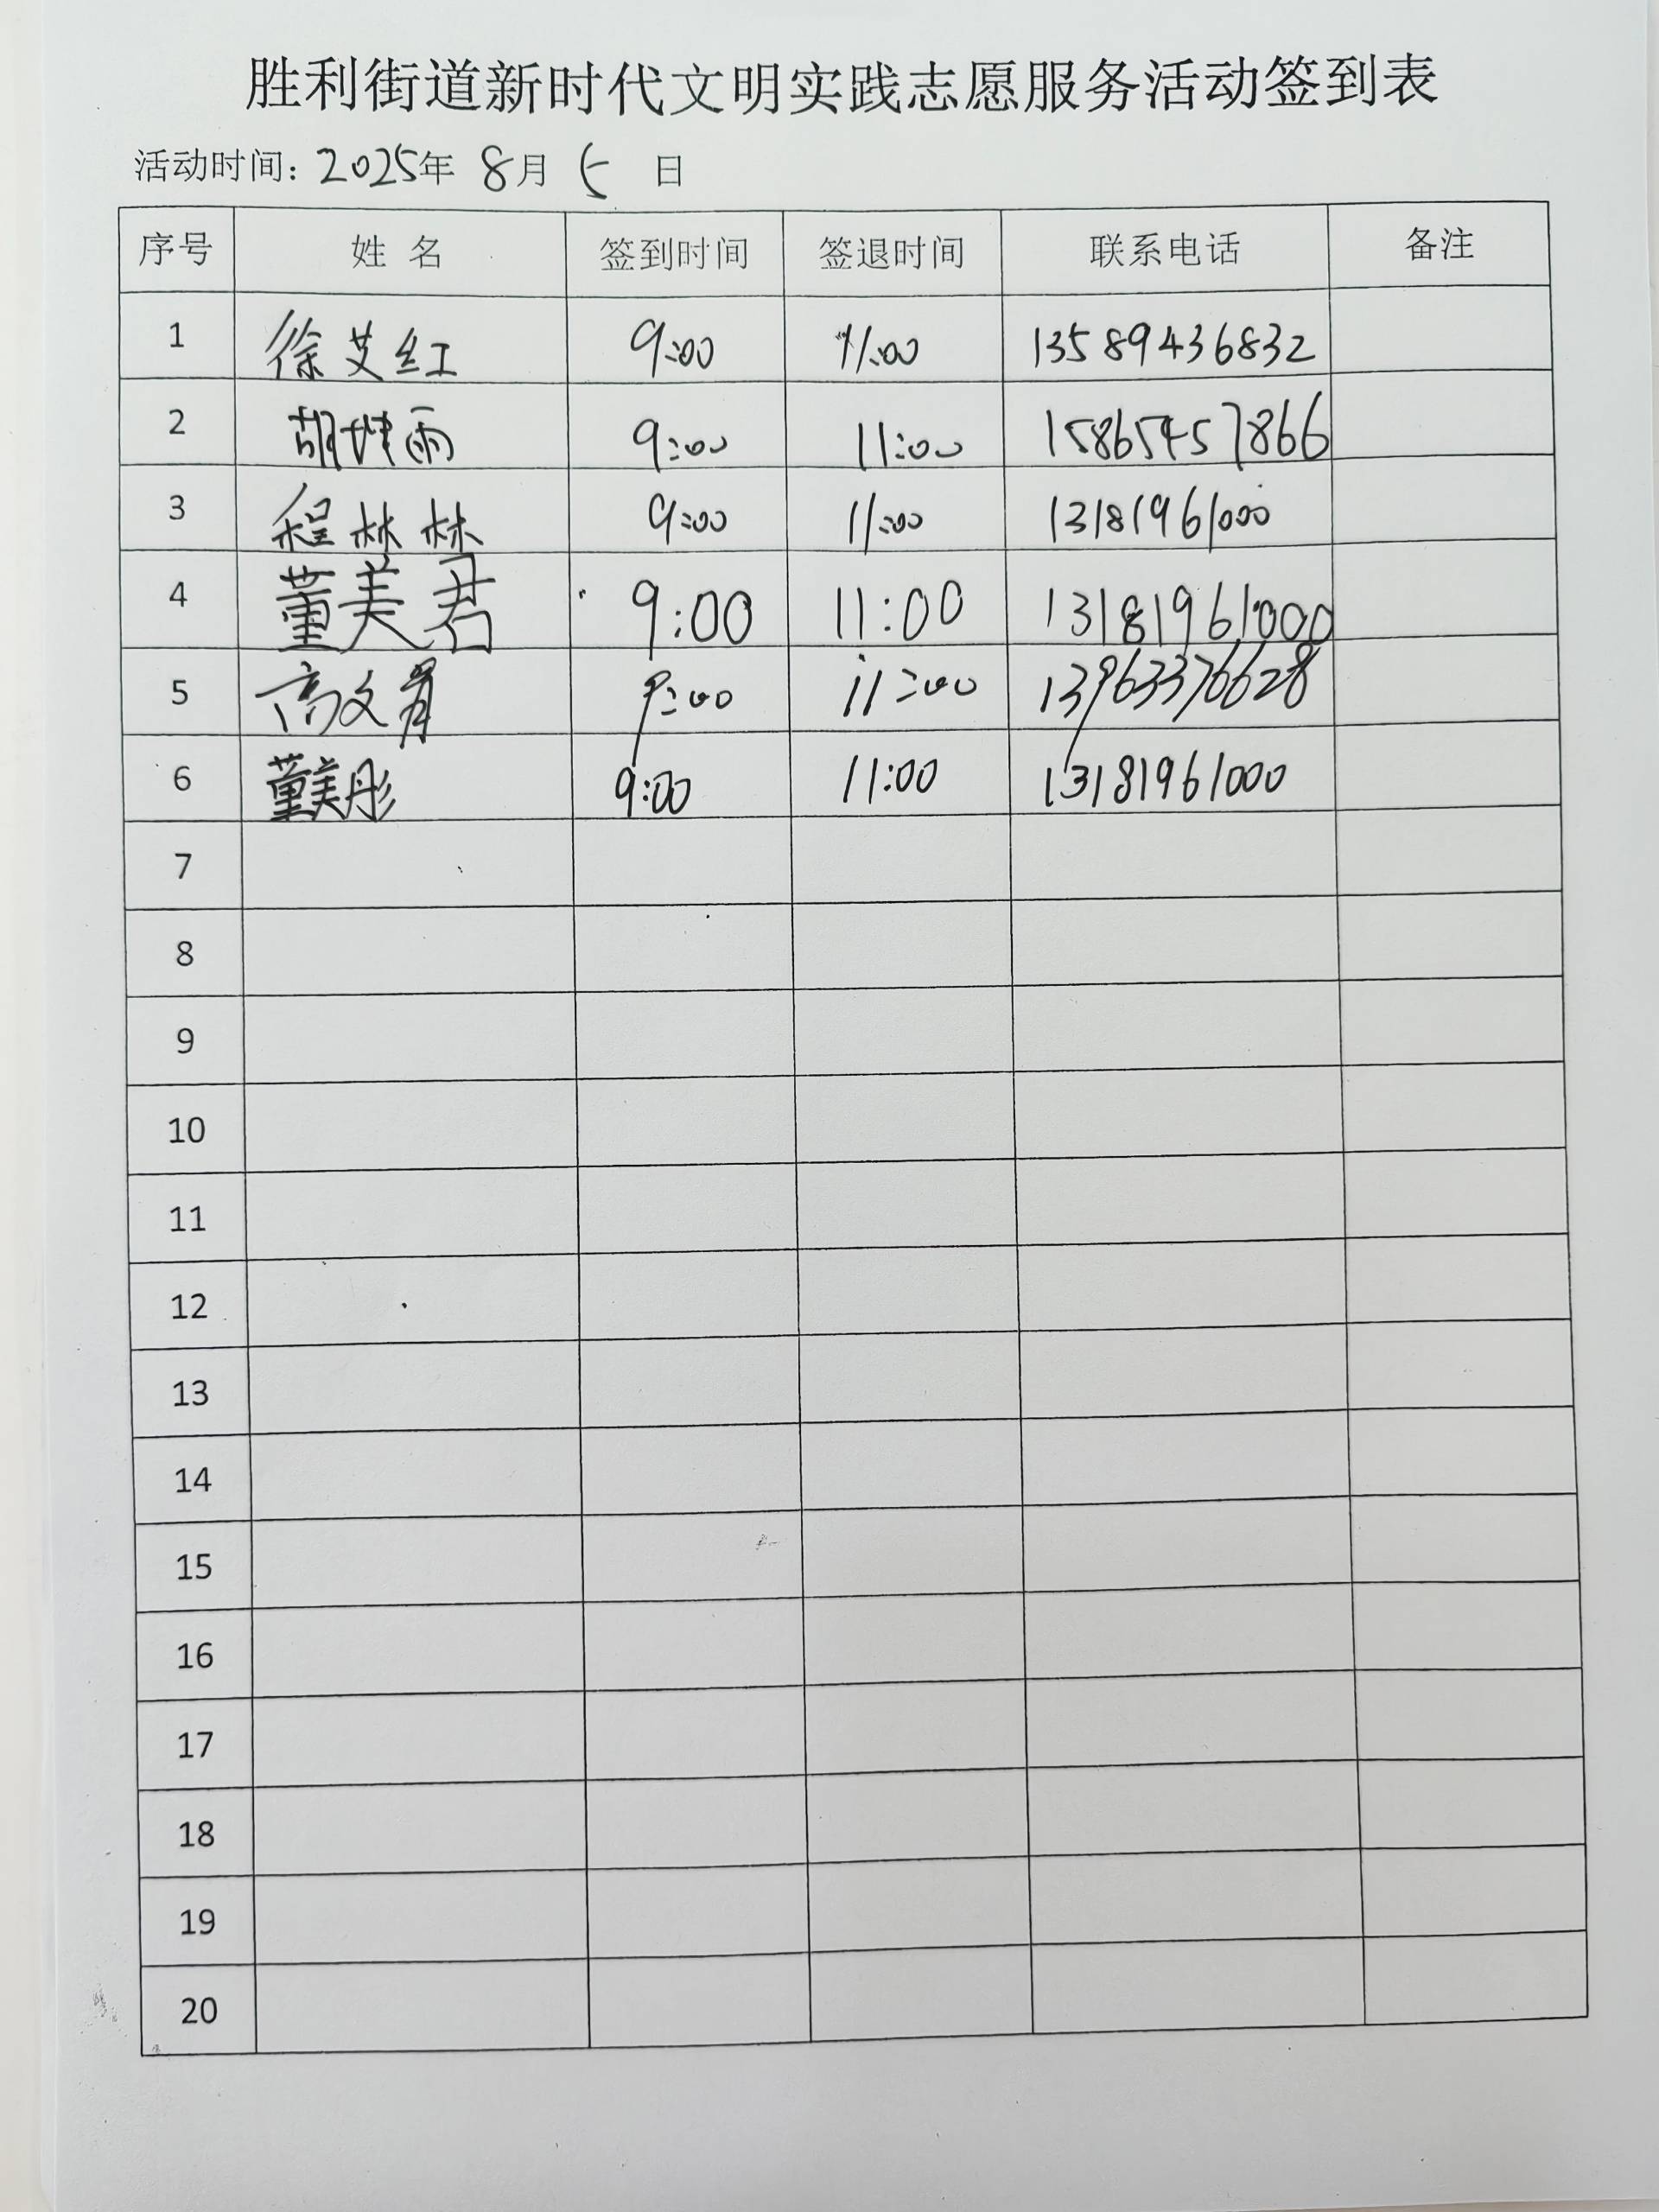 胜利街道新时代文明实践志愿服务活动签到表
活动时间：2025年 8月 5 日
序号 姓 名 签到时间 签退时间 联系电话 备注
1 徐艾红 9:00 11:00 13589436832
2 胡雨 9:00 11:00 15865457866
3 程林林 9:00 11:00 13181961000
4 董美君 9:00 11:00 13181961000
5 高文 9:00 11:00 13963376628
6 董美彤 9:00 11:00 13181961000
7
8
9
10
11
12
13
14
15
16
17
18
19
20